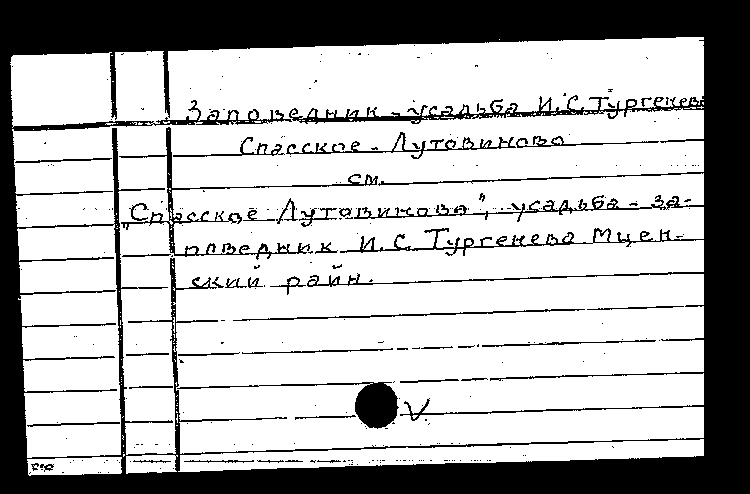 Заповедник - усадьба И.С. Тургенева
Спасское - Лутовиново
см.
"Спасское Лутовиново", усадьба - за-
поведник И.С. Тургенева Мцен-
ский райн.
V